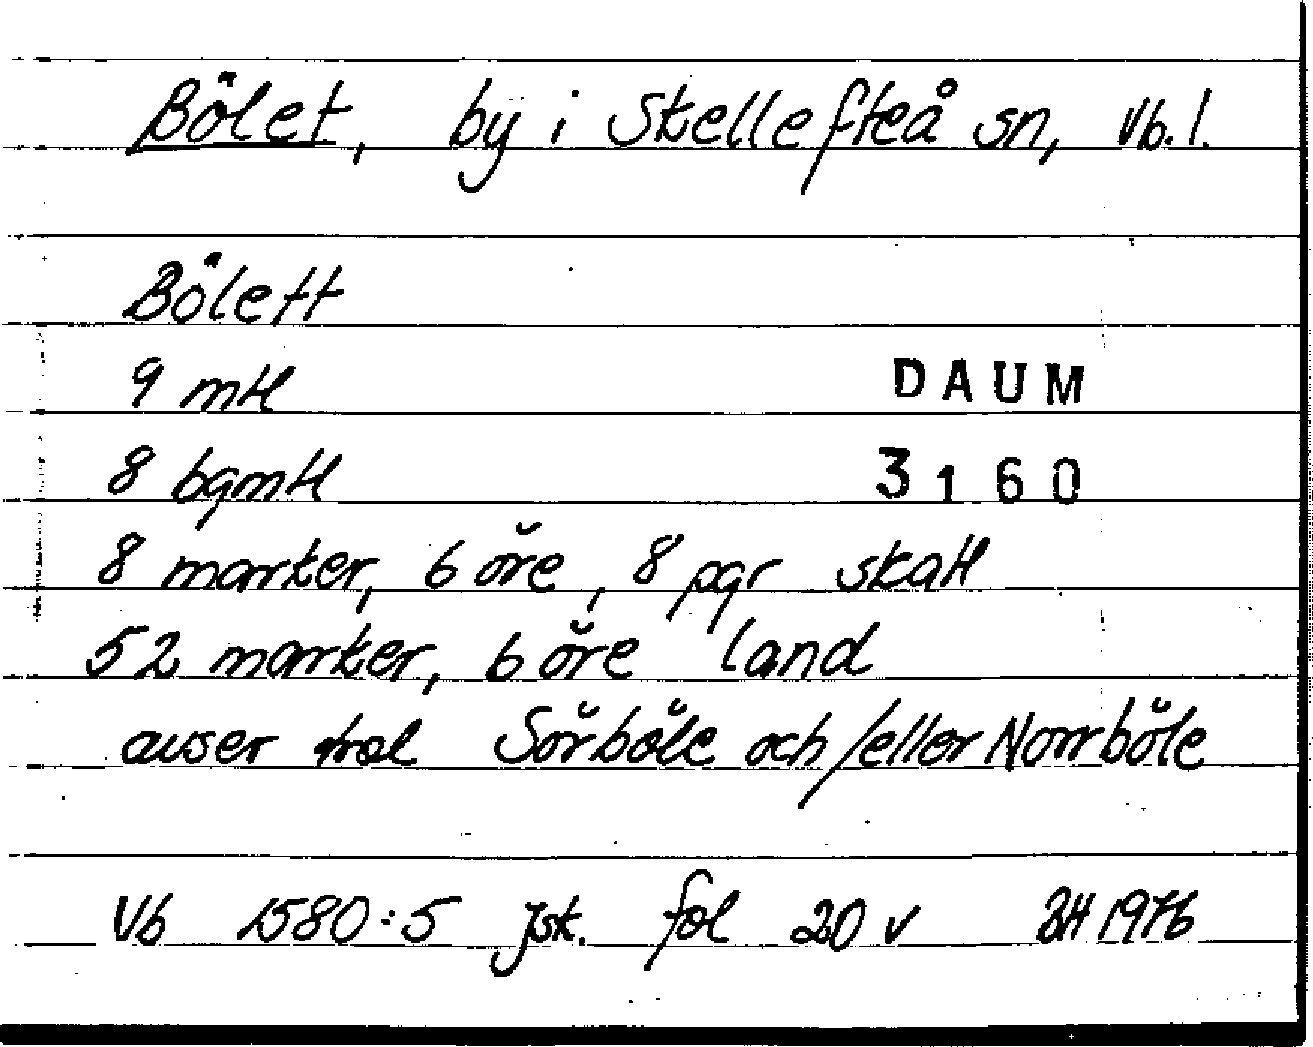 Bölet, by i Skellefteå sn, Vb. l.
Bölett
9 mtl
DAUM
8 bgmtl
3160
8 marker, 6 öre, 8 pgr skatt
52 marker, 6 öre land
avser trol Sörböle och/eller Norrböle
Vb 1580:5 jsk. fol 20 v BH 1976